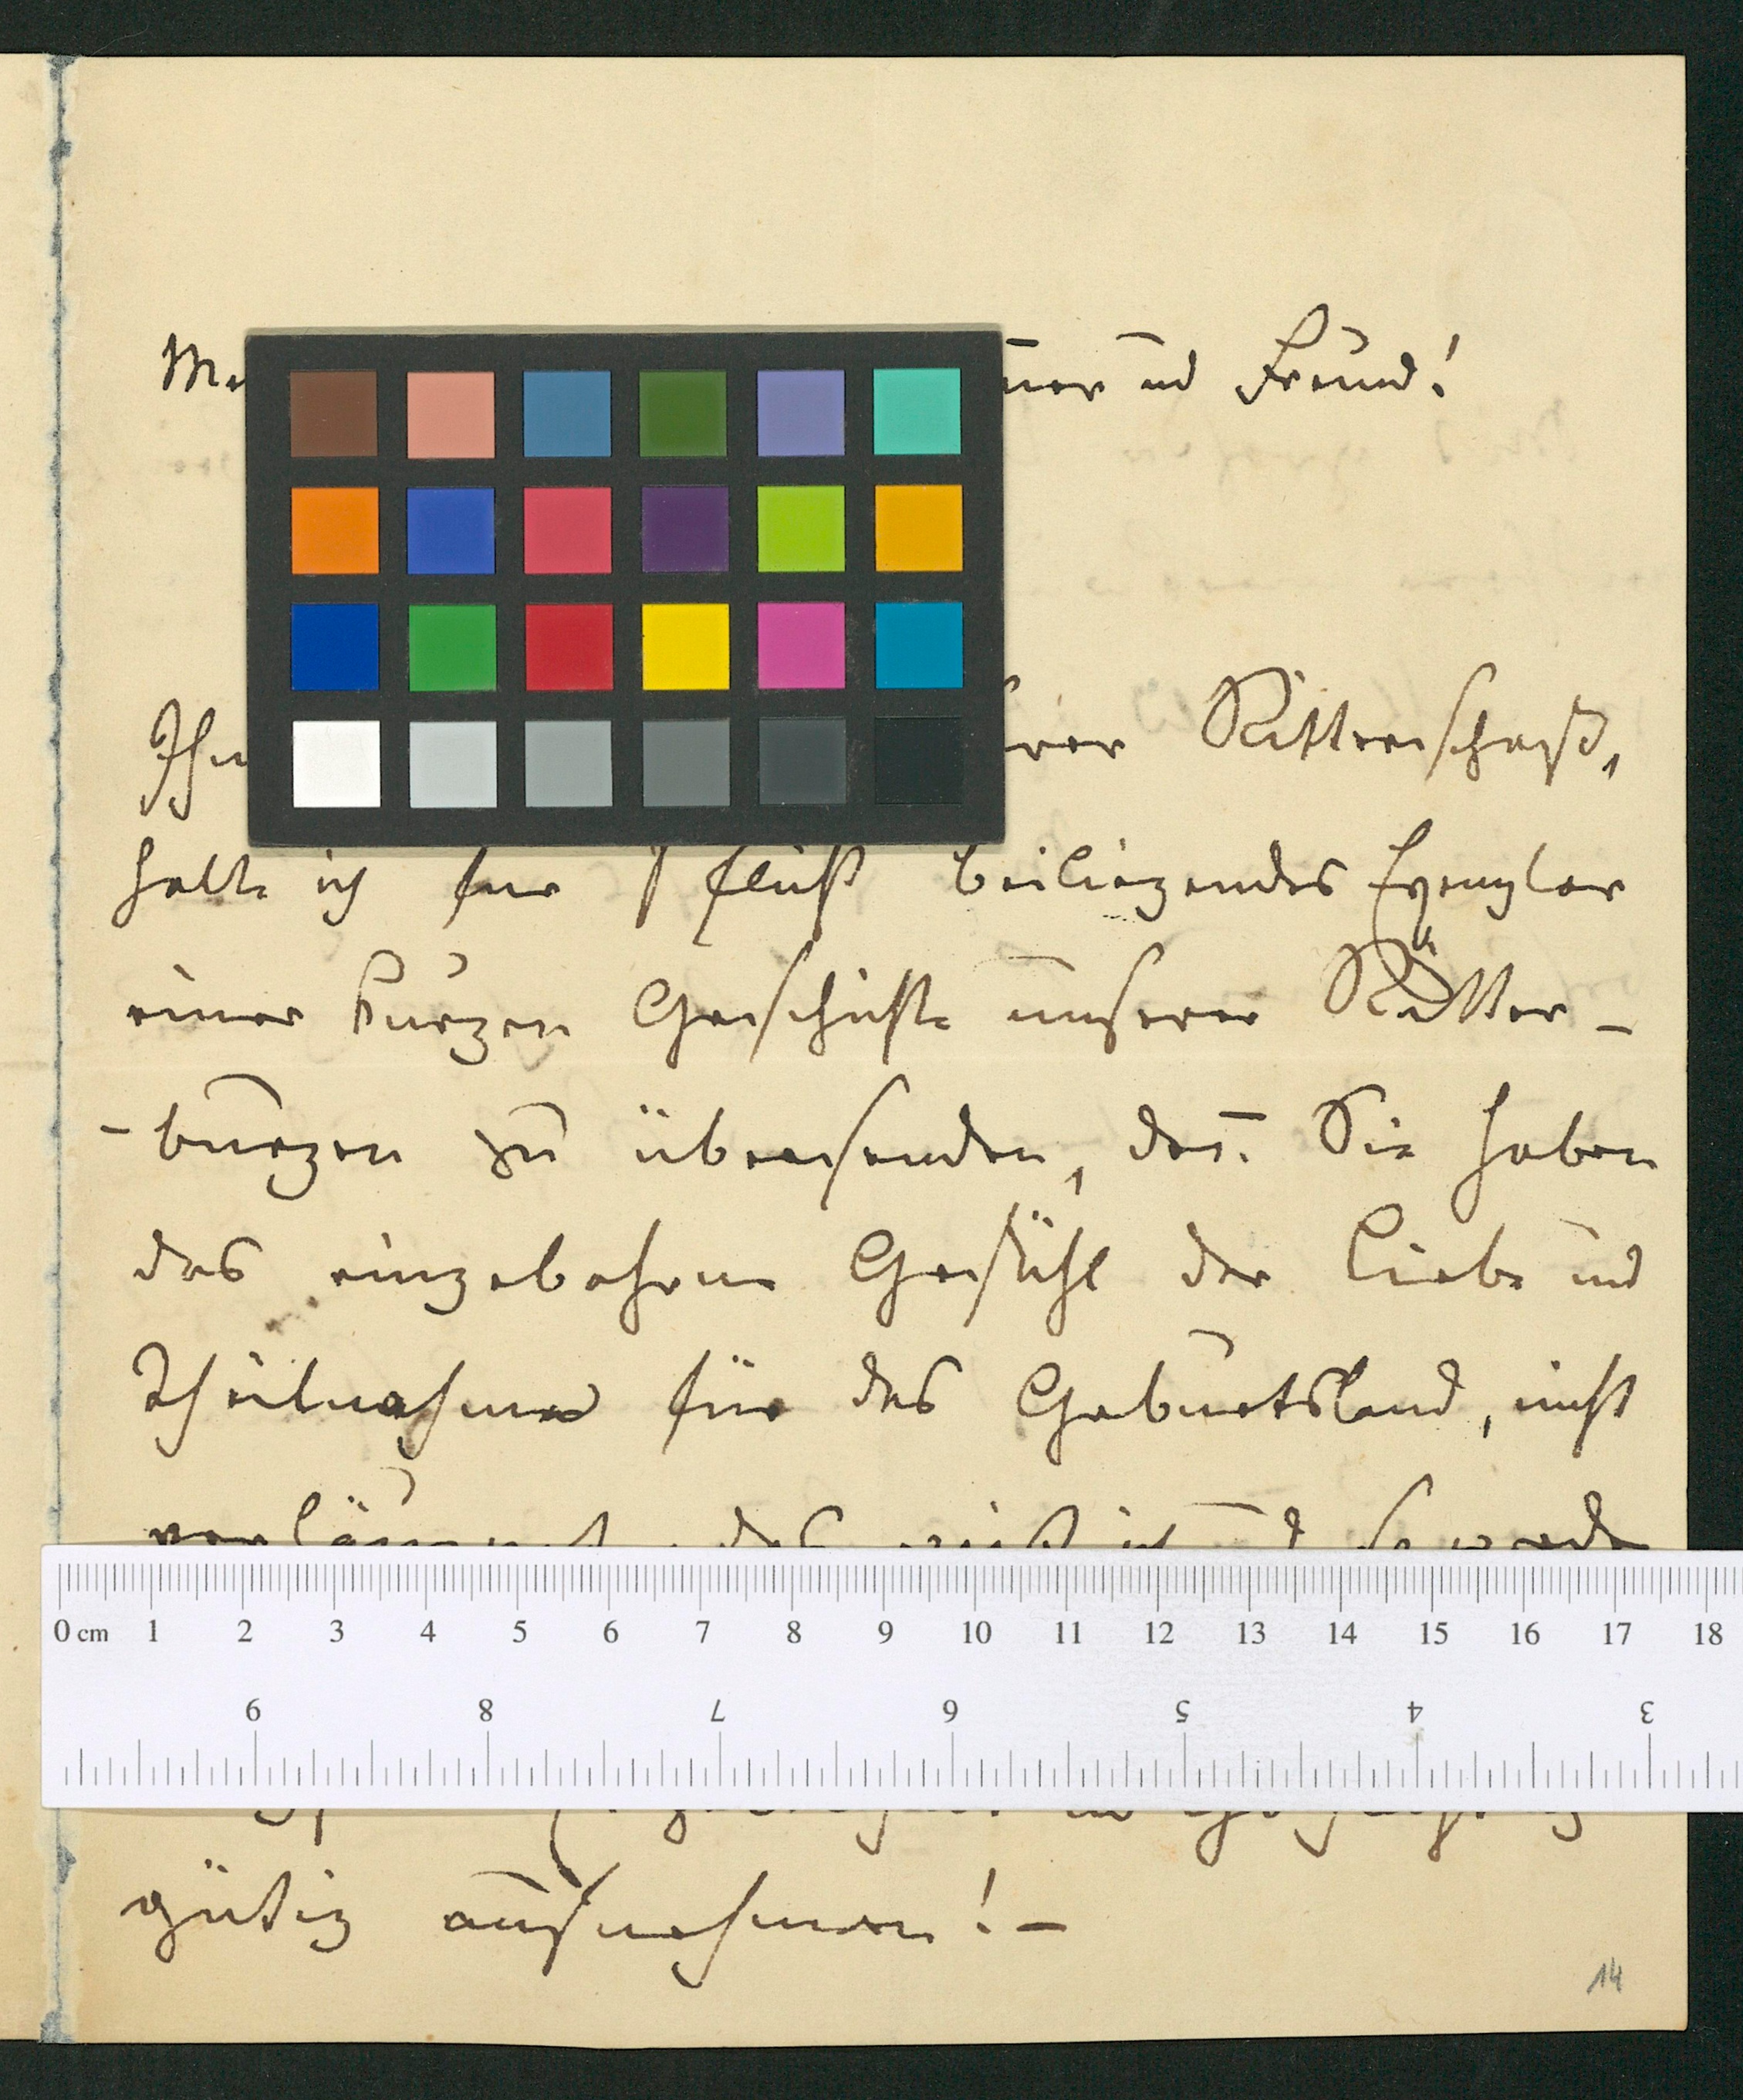 und Freund!
Ritterschaft,
halte ich für Pflicht beiliegendes Exemplar
einer kurzen Geschichte unserer Ritter-
-burgen zu übersenden, den Sie haben
das eingebohrne Gefühl der Liebe und
Theilnahme für das Geburtsland, nicht
verläugnet, das weiß ich und So werde
0 cm 1 2 3 4 5 6 7 8 9 10 11 12 13 14 15 16 17 18
9 8 7 6 5 4 3
gütig aufnehmen! -
14